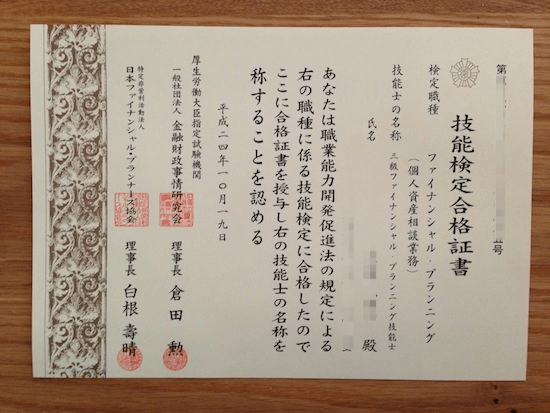 技能検定合格証書
第 号
検定職種 ファイナンシャル・プランニング
(個人資産相談業務)
技能士の名称 三級ファイナンシャル・プランニング技能士
氏名 殿
あなたは職業能力開発促進法の規定による
右の職種に係る技能検定に合格したので
ここに合格証書を授与し右の技能士の名称を
称することを認める
平成二四年一〇月一九日
厚生労働大臣指定試験機関
一般社団法人 金融財政事情研究会 理事長 倉田 勲
特定非営利活動法人
日本ファイナンシャル・プランナーズ協会 理事長 白根 壽晴